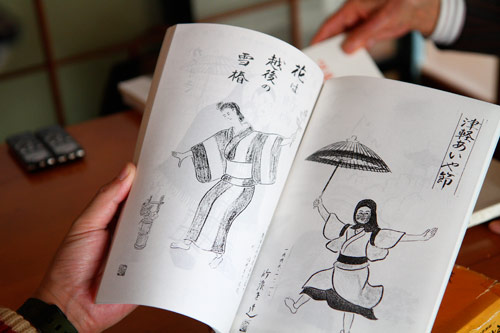 津軽あいや節
花は
越後の
雪椿